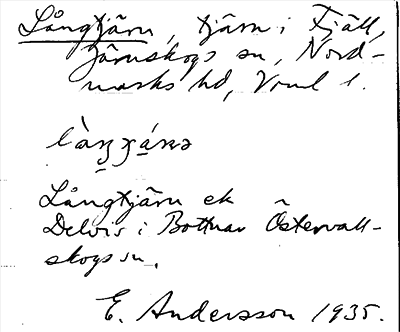 Långtjärn, tjärn i Fjäll,
Järnskogs sn, Nord-
marks hd, Vrml l.
Långtjärn ek
Delvis i Bottnar Östervall-
skogs sn.
E. Andersson 1935.